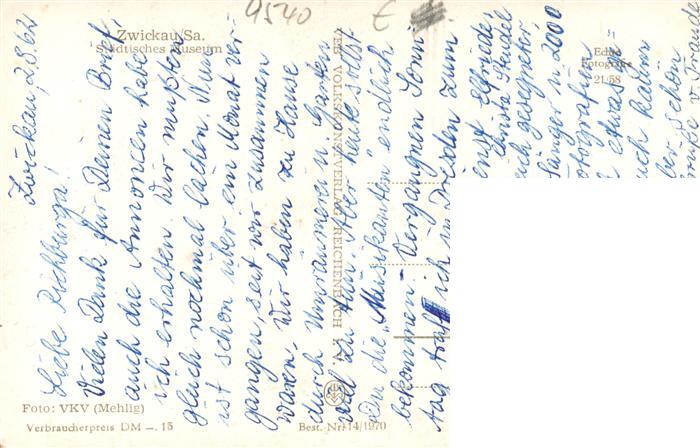 Zwickau/Sa.
Städtisches Museum
9540
Echte
Fotografie
21/58
Zwickau, 2.9.62
Liebe Richburga!
Vielen Dank für Deinen Brief,
auch die Annoncen habe
ich erhalten. Wir mußten
gleich nochmal lachen. Nun
ist schon über ein Monat ver-
gangen, seit wir zusammen
waren. Wir haben zu Hause
durch Umräumerei u. Garten
viel zu tun. Aber heute sollst
Du die "Musikanten" endlich
bekommen. Vergangnen Sonn-
tag traf ich in Dresden zum
enst Elfriede,
Christa Steudel
eich gesegneter
Sänger u. 2000
otografien
etwas
uch kaum
ber schön
VEB VOLKSKUNSTVERLAG REICHENBACH
Foto: VKV (Mehlig)
Verbraucherpreis DM -.15
Best.-Nr. 14/1970